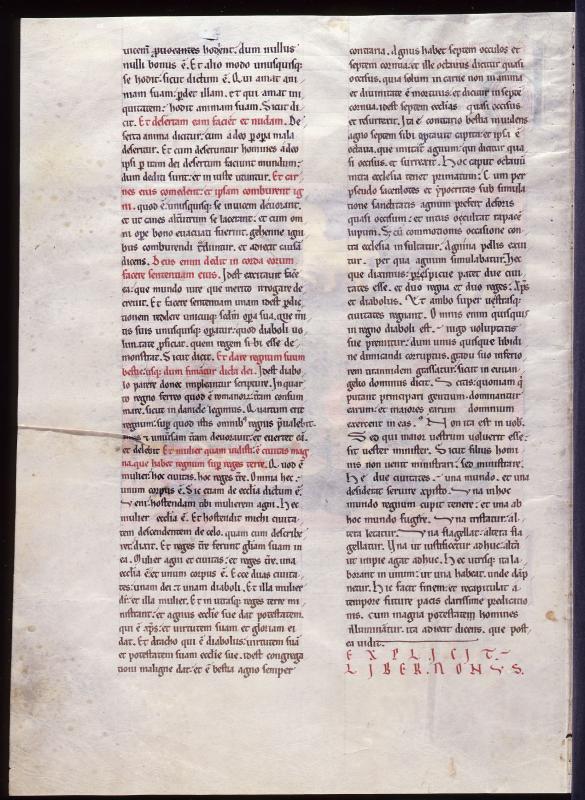 uicem prouocantes hodent. dum nullus
nulli bonus ē. Et alio modo unusquisq;
se hodit. sicut dictum ē. Qui amat ani
mam suam; pdet illam. et qui amat ini
quitatem; hodit animam suam. Sicut di
cit. Et desertam eam facient et nudam. De
serta anima dicitur; cum a deo p opa mala
deseritur. Et cum deseruntur homines a deo
ipsi p iram dei desertum faciunt mundum;
dum dediti sunt; et iniuste uiuunt. Et car
nes eius comedent; et ipsam comburent ig
ni. quod ē unusquisq; se inuicem deuorant.
et ut canes alterutrum se lacerant. et cum om
ni ope bono euacuati fuerint. gehenne igni
bus comburendi tduntur. et adiecit causā
dicens. Deus enim dedit in corda eorum
facere sententiam eius. Idest excitauit face
ea; que mundo iure que merito irrogare de
creuit. Et facere sententiam unam idest pdic
tionem reddere unicuiq; scdm opa sua. que
tis suis unusquisq; opatur; quod diaboli uo
luntate pficiat. quem regem sibi esse de
monstrat. Sicut dicit. Et dare regnum suum
bestie; usq; dum finiatur dicta dei. Idest diabo
lo parere donec impleantur scripture. In quar
to regno ferreo quod ē romanorum; tam consum
mare. sicut in daniele legimus. Quartum erit
regnum; sup quod istis omnibus regnis pualebit.
et uniusam tram deuorauit; et euertet eā.
et delebit. Et mulier quam uidisti; ē ciuitas mag
na. que habet regnum sup reges terre. Quod ē
mulier; hoc ciuitas. hoc reges tre. Omnia hec
unum corpus ē. Sic etiam de ecclia dictum ē.
Veni hostendam tibi mulierem agni. Hec
mulier ecclia ē. Et hostendit michi ciuita
tem descendentem de celo. quam cum describe
ret; dixit. Et reges tre ferunt gliam suam in
ea. Mulier agni et ciuitas; et reges tre. una
ecclia ē; et unum corpus ē. Ecce duas ciuita
tes; unam dei et unam diaboli. Et illa mulier
dr; et illa mulier. Et in utrasq; reges terre mi
nistrant; et agnus ecclie sue dat potestatem.
qui ē xps; et uirtutem suam et gloriam ei
dat. Et dracho qui ē diabolus; uirtutem suā
et potestatem suam ecclie sue. idest congrega
tioni maligne dat; et ē bestia agno semper
contraria. Agnus habet septem occulos et
septem cornua. et ille octauus dicitur quasi
occisus. quia solum in carne non in anima
et diuinitate ē mortuus. et dicitur in septē
cornua. idest septem ecclias quasi occisus
et resurrexit. Ita e contario bestia mutdens
agno septem sibi aptauit capita; et ipsa ē
octaua. que imitat agnum; qui dicitur qua
si occisus. et surrexit. Hoc caput octauū
intra ecclesia tenet primatum; Cum per
pseudo sacerdotes et ypocritas sub simula
tione sanctitatis agnum prefert deforis
quasi occisum; et intus occultat rapacē
lupum. Sed cū commotionis occasione con
tra ecclesia insultatur. Agnina pellis exui
tur. per qua agnum simulabatur. Hec
que diximus; perspicue patet due ciui
tates esse. et duo regna et duo reges; Xps
et diabolus. Et ambo super utrasq;
ciuitates regnant. Omnis enim quisquis
in regno diaboli est. iugo uoluptatis
sue premitur; dum unus quisque libidi
ne dominandi corruptus. gradu suo inferio
rem tirannidem grassatur. sicut in euuan
gelio dominus dicit. Scitis; quoniam qui
putant principari gentium; dominantur
earum; et maiores earum dominium
exercent in eas. Non ita est in uob.
Sed qui maior uestrum uoluerit esse;
sit uester minister. Sicut filius homi
nis non uenit ministrari. sed ministrare.
He due ciuitates. una mundo. et una
desiderat seruire xpisto. Una in hoc
mundo regnum cupit tenere; et una ab
hoc mundo fugere. Una tristatur; al
tera letatur. Una flagellat; altera fla
gellatur. Una ut iustificetur adhuc; altā
ut impie agat adhuc. Hec utrasq; ita la
borant in unum; ut una habeat. unde dāp
netur. Hic facit finem; et recapitulat a
tempore future pacis clarissime predicatio
nis. cum magna potestatem homines
illuminātur. ita adiecit dicens. que post
ea uidit.
EXPLICIT.
LIBER. NONUS.